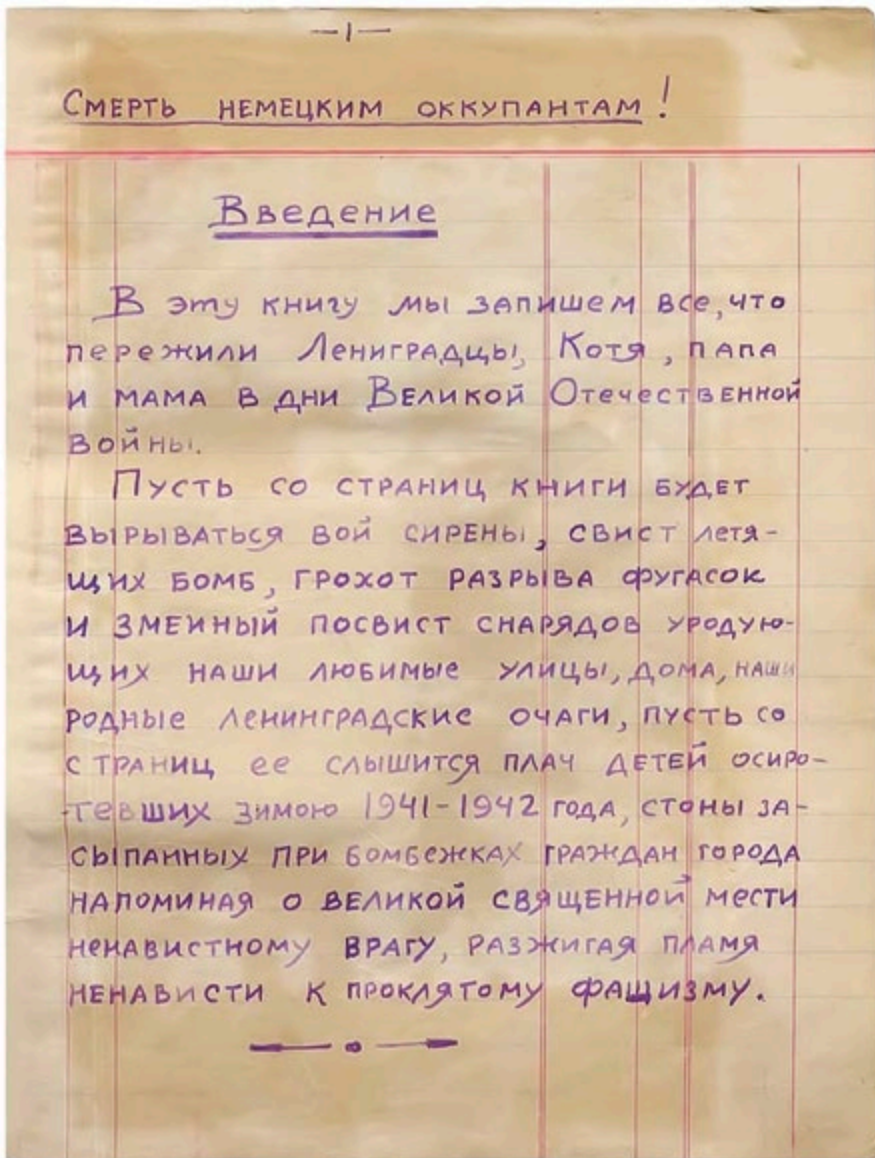 —1—
Смерть немецким оккупантам!
Введение
В эту книгу мы запишем все, что
пережили Лениградцы, Котя, папа
и мама в дни Великой Отечественной
войны.
Пусть со страниц книги будет
вырываться вой сирены, свист летя-
щих бомб, грохот разрыва фугасок
и змеиный посвист снарядов уродую-
щих наши любимые улицы, дома, наши
родные ленинградские очаги, пусть со
страниц ее слышится плач детей осиро-
тевших зимою 1941-1942 года, стоны за-
сыпанных при бомбежках граждан города
напоминая о великой священной мести
ненавистному врагу, разжигая пламя
ненависти к проклятому фащизму.